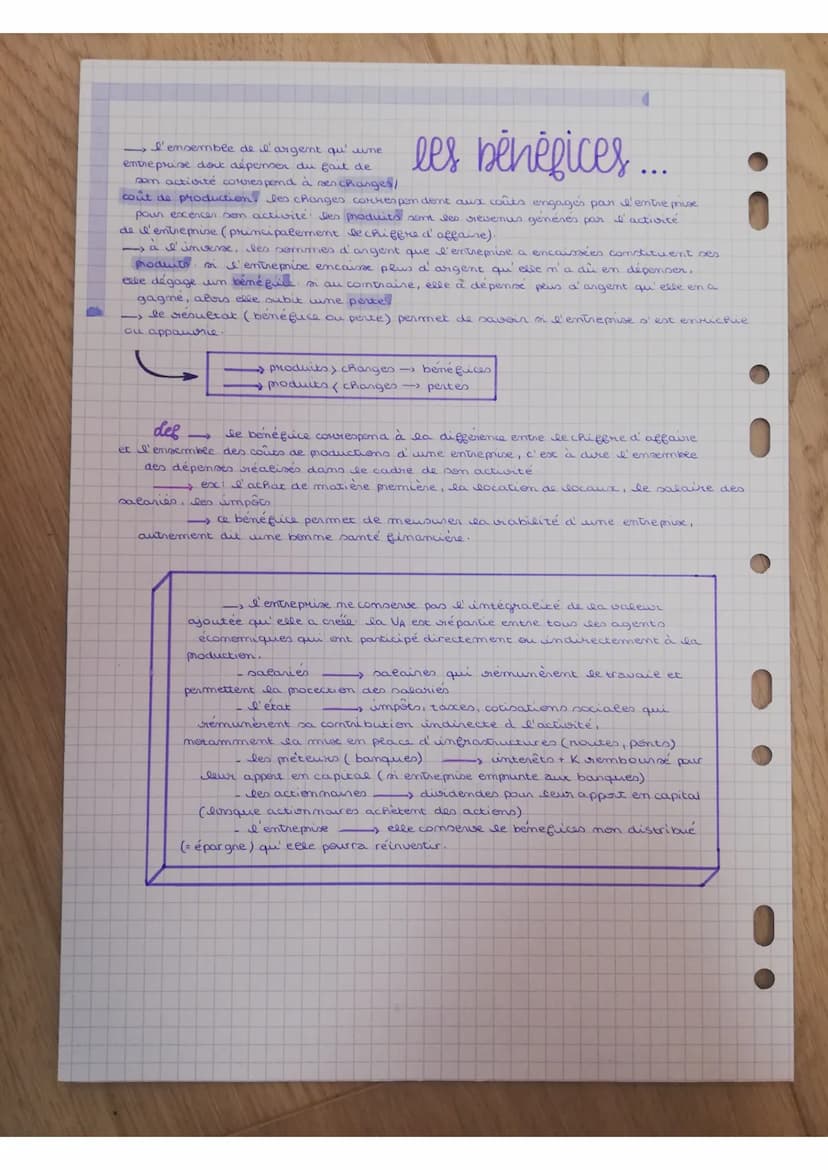 les bénéfices ...
→ l'ensemble de l'argent qu'une
entreprise doit dépenser du fait de
son activité correspond à ses charges/
coût de production. les charges correspondent aux coûts engagés par l'entreprise
pour exercer son activité. les produits sont les revenus générés par l'activité
de l'entreprise (principalement le chiffre d'affaire).
→ à l'inverse, les sommes d'argent que l'entreprise a encaissées constituent ses
produits. si l'entreprise encaisse plus d'argent qu'elle n'a dû en dépenser,
elle dégage un bénéfice. si au contraire, elle a dépensé plus d'argent qu'elle en a
gagné, alors elle subit une perte.
→ le résultat (bénéfice ou perte) permet de savoir si l'entreprise s'est enrichie
ou appauvrie.
→ produits > charges → bénéfices
→ produits < charges → pertes
def → le bénéfice correspond à la différence entre le chiffre d'affaire
et l'ensemble des coûts de productions d'une entreprise, c'est à dire l'ensemble
des dépenses réalisés dans le cadre de son activité
→ ex: l'achat de matière première, la location de locaux, le salaire des
salariés, les impôts
→ ce bénéfice permet de mesurer la viabilité d'une entreprise,
autrement dit une bonne santé financière.
→ l'entreprise ne conserve pas l'intégralité de la valeur
ajoutée qu'elle a créée. la VA est répartie entre tous les agents
économiques qui ont participé directement ou indirectement à la
production.
- salariés → salaires qui rémunèrent le travail et
permettent la protection des salariés
- l'état → impôts, taxes, cotisations sociales qui
rémunèrent sa contribution indirecte à l'activité,
notamment la mise en place d'infrastructures (routes, ponts)
- les prêteurs (banques) → intérêts + K remboursé pour
leur apport en capital (si entreprise emprunte aux banques)
- les actionnaires → dividendes pour leur apport en capital
(lorsque actionnaires achètent des actions)
- l'entreprise → elle conserve le bénéfices non distribué
(= épargne) qu'elle pourra réinvestir.